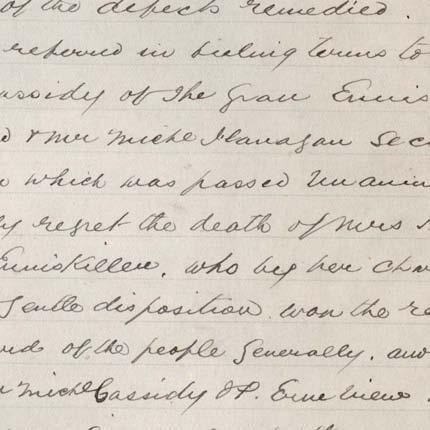 of the defects remedied.
referred in feeling terms to
Cassidy of The Graan Ennis
& Mr Michl Flanagan Sec
which was passed Unanim
regret the death of Mrs
Enniskillen, who by her Char
Gentle disposition won the re
of the people Generally, and
Michl Cassidy J.P. Erne View